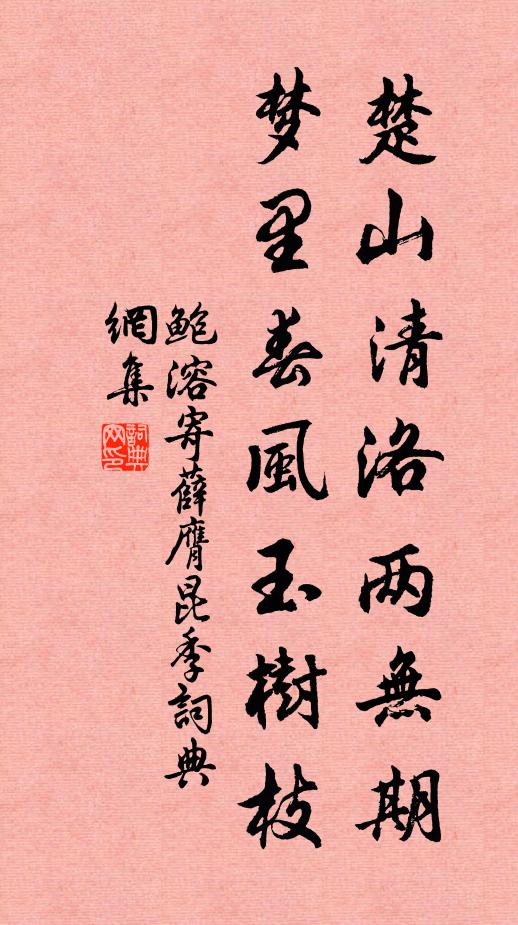 楚山清洛两無期
梦里春風玉樹枝
鲍溶寄薛膺昆季詞典
網集
詞典
网印